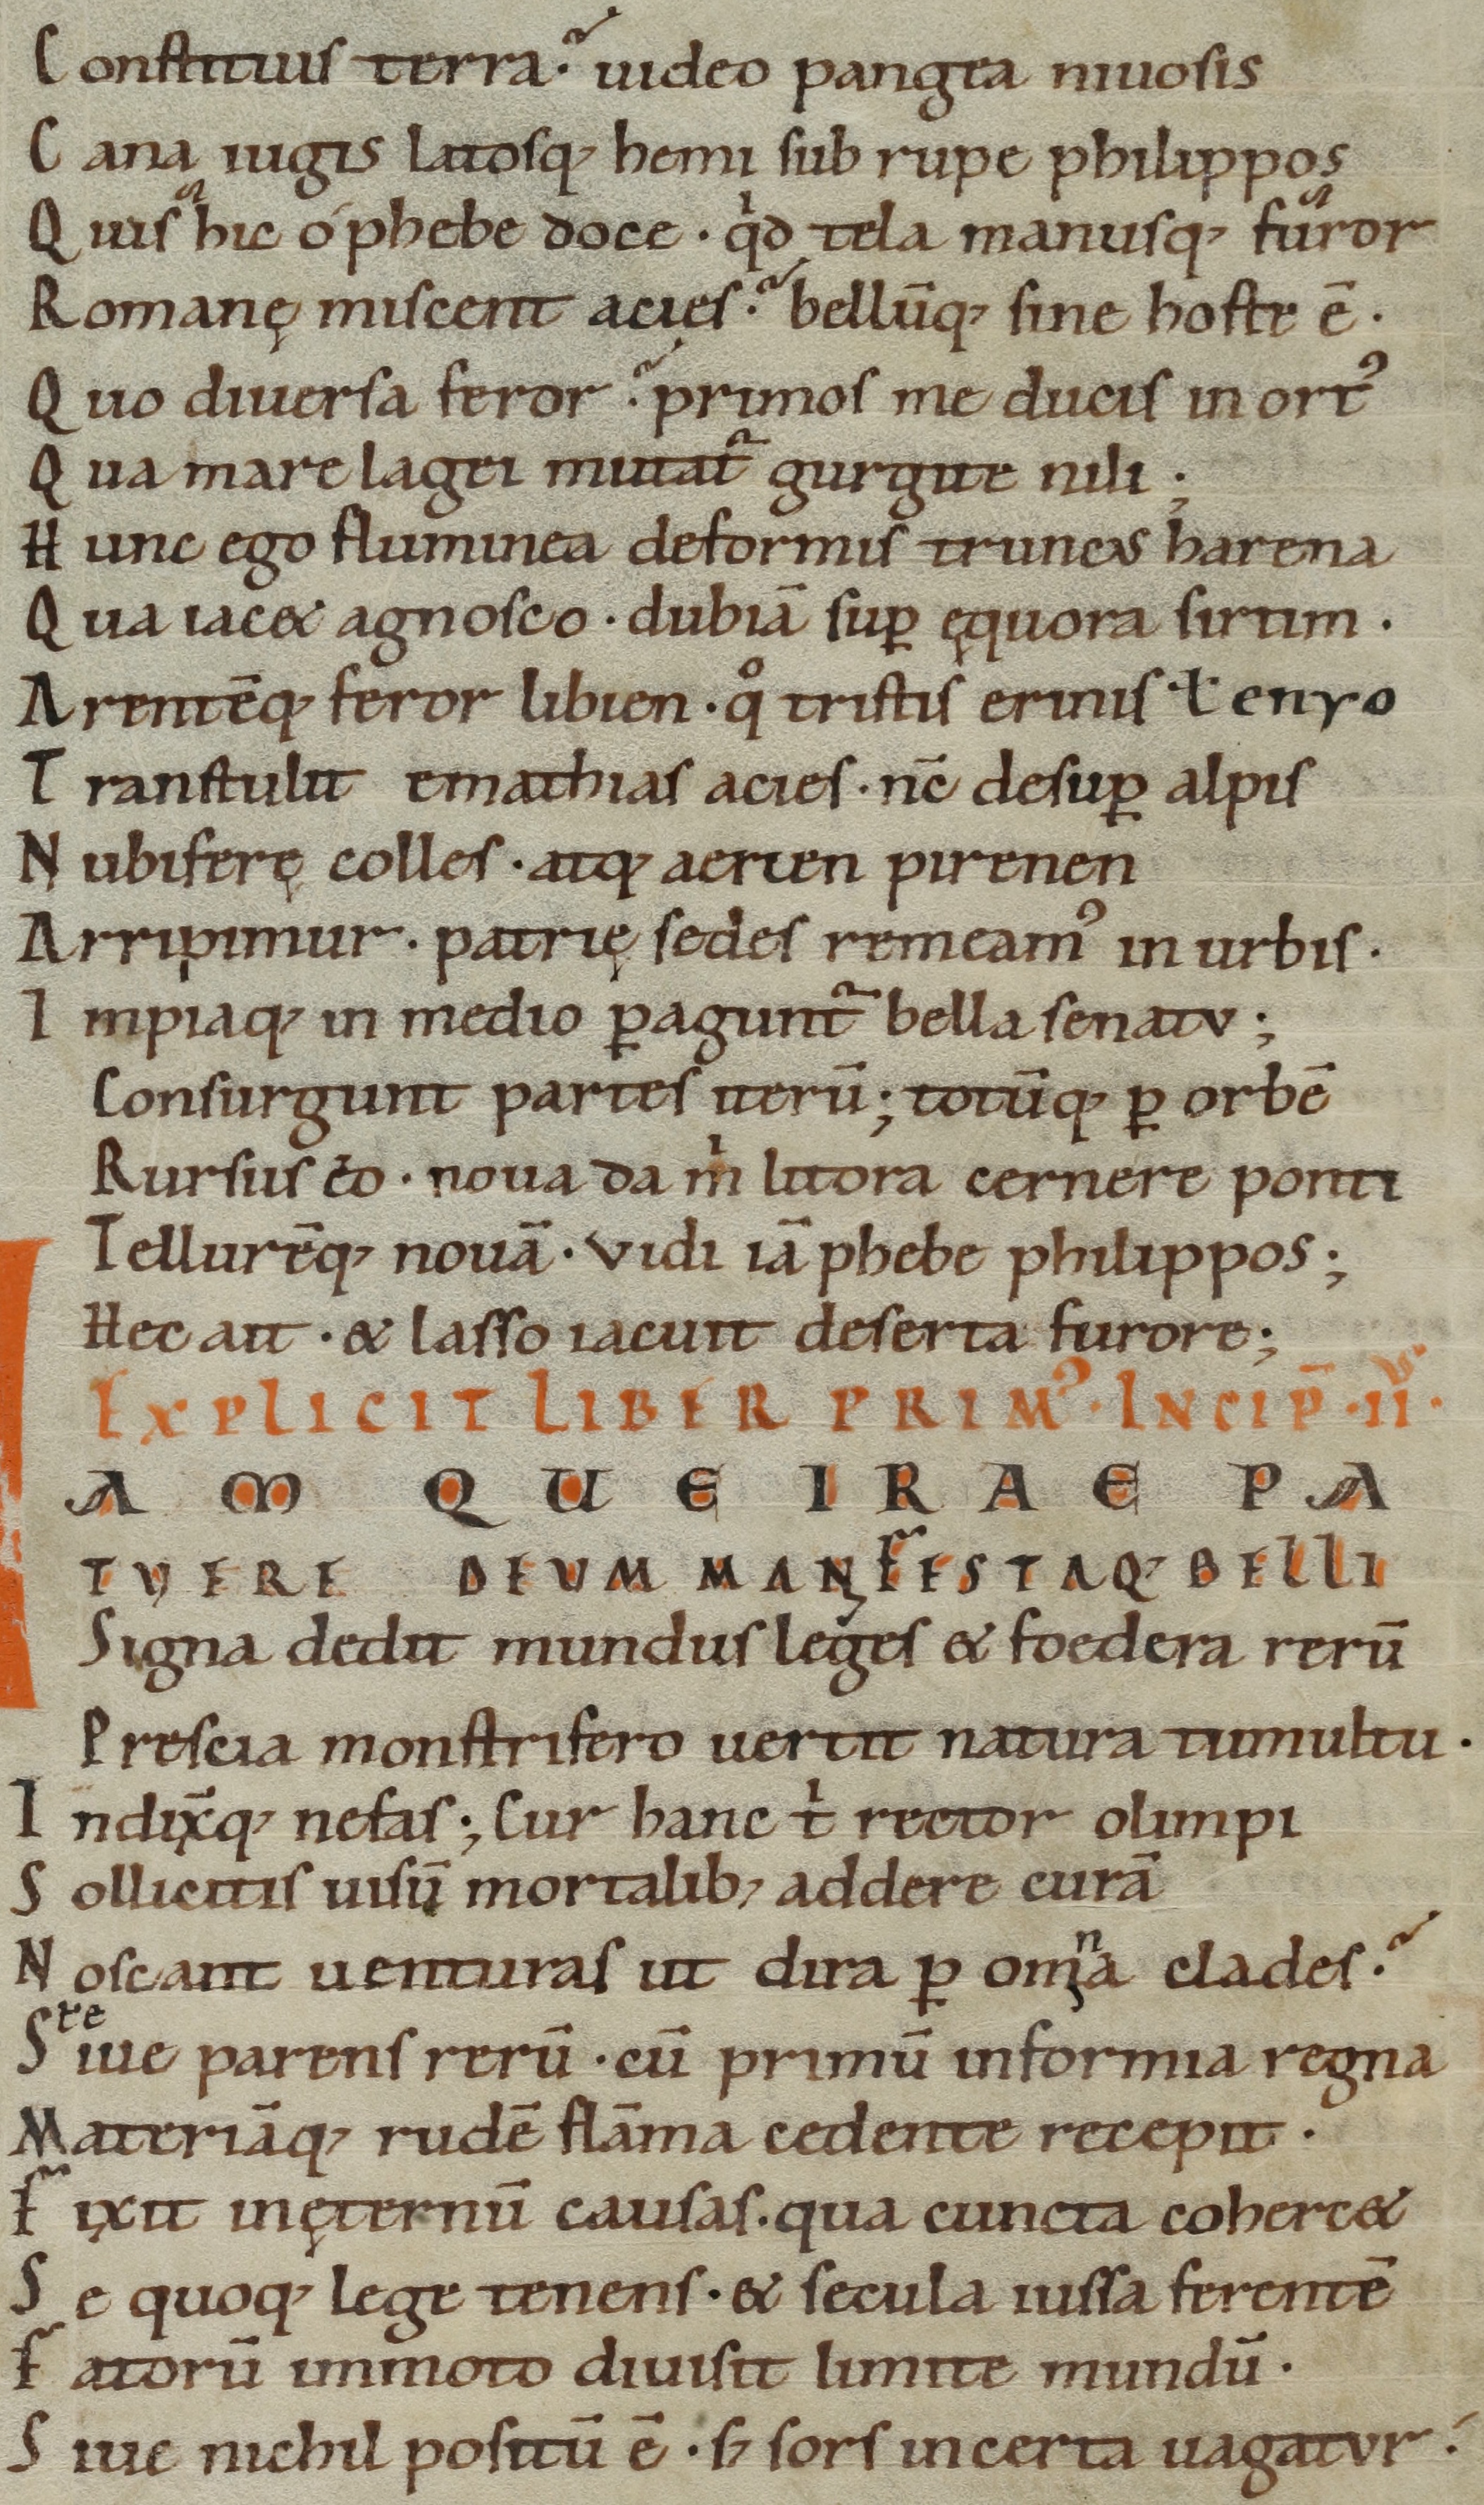 Constituis terra? uideo pangea niuosis
Cana iugis latosq; hemi sub rupe philippos
Quis hic o phebe doce · qd tela manusq; furor
Romanę miscent acies? bellūq; sine hoste ē.
Quo diuersa feror? primos me ducis in ort᾿
Qua mare lagei mutat᷑ gurgite nili;
Hunc ego fluminea deformis truncus harena
Qua iacet agnosco · dubiā suꝑ ęquora sirtim ·
Arentēq; feror libien · qͦ tristis erinis ł enyo
Transtulit emathias acies · nc̄ desuꝑ alpis
Nubiferę colles · atq; aerien pirenen
Arripimur · patrię sedes remeam᾿ in urbis ·
Impiaq; in medio ꝑagunt᷑ bella senatv;
Consurgunt partes iterū; totūq; ꝑ orbē
Rursus eo · noua da m̍ litora cernere ponti
Tellurēq; nouā · vidi iā phebe philippos;
Hec ait · & lasso iacuit deserta furore;
EXPLICIT LIBER PRIM᾿ · INCIP̄ · II ·
IAM QUE IRAE PA
TVERE DEUM MANIFESTAQ; BELLI
Signa dedit mundus leges & foedera rerū
Prescia monstrifero uertit natura tumultu ·
Indix̄q; nefas; Cur hanc t̍ rector olimpi
Sollicitis uisū mortalib; addere curā
Noscant uenturas ut dira ꝑ omīa clades?
Siue parens rerū · cū primū informia regna
Materiāq; rudē flāma cedente recepit ·
Fixit in ęternū causas · qua cuncta coherc&
Se quoq; lege tenens · & secula iussa ferentē
Fatorū immoto diuisit limite mundū ·
Siue nichil positū ē · s; sors incerta uagatvr ·